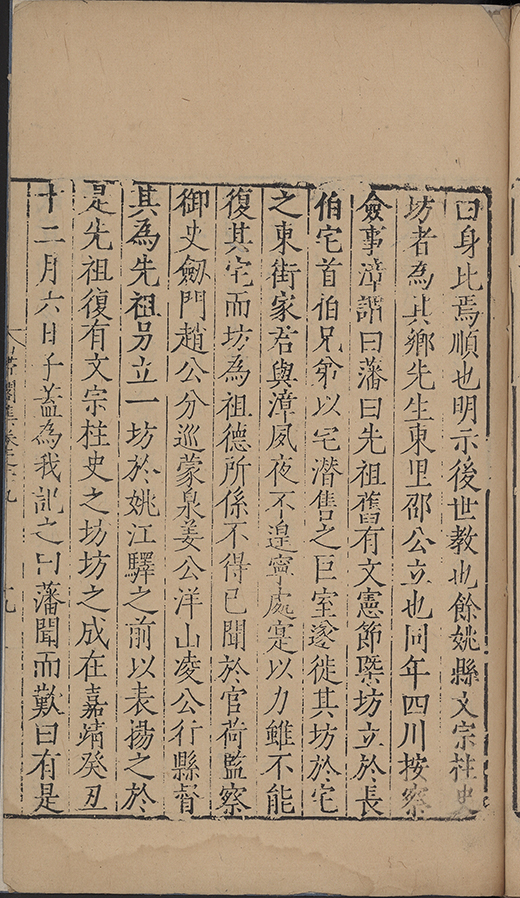 曰身比焉順也明示後世教也餘姚縣文宗柱史
坊者為其鄉先生東里邵公立也同年四川按察
僉事漳謂曰藩曰先祖舊有文憲節槩坊立於長
伯宅首伯兄弟以宅潛售之巨室遂徙其坊於宅
之東街家君與漳夙夜不遑寧處寔以力雖不能
復其宅而坊為祖德所係不得已聞於官荷監察
御史劒門趙公分巡蒙泉姜公洋山凌公行縣督
其為先祖另立一坊於姚江驛之前以表揚之於
是先祖復有文宗柱史之坊坊之成在嘉靖癸丑
十二月六日子盍為我記之曰藩聞而歎曰有是